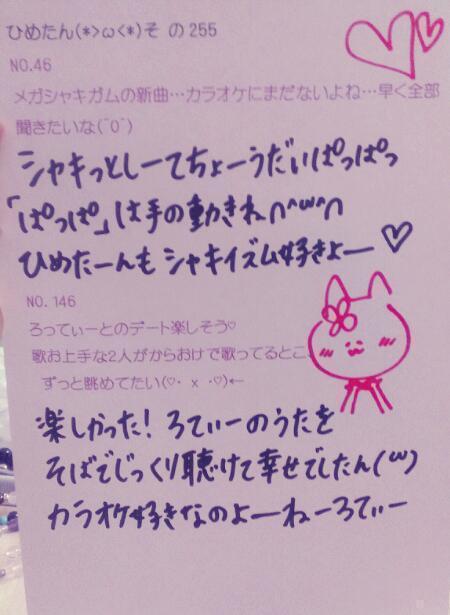 ひめたん(*>ω<*)そ の255
NO.46
メガシャキガムの新曲…カラオケにまだないよね…早く全部
聞きたいな(^O^)
シャキっとしーてちょーうだいぱっぱっ
「ぱっぱ」は手の動きね∩^ω^∩
ひめたーんもシャキイズム好きよー♡
NO.146
ろってぃーとのデート楽しそう♡
歌お上手な2人がからおけで歌ってるとこ、
ずっと眺めてたい(♡・x・♡)←
楽しかった!ろてぃーのうたを
そばでじっくり聴けて幸せでしたん(ω)
カラオケ好きなのよーねーろてぃー